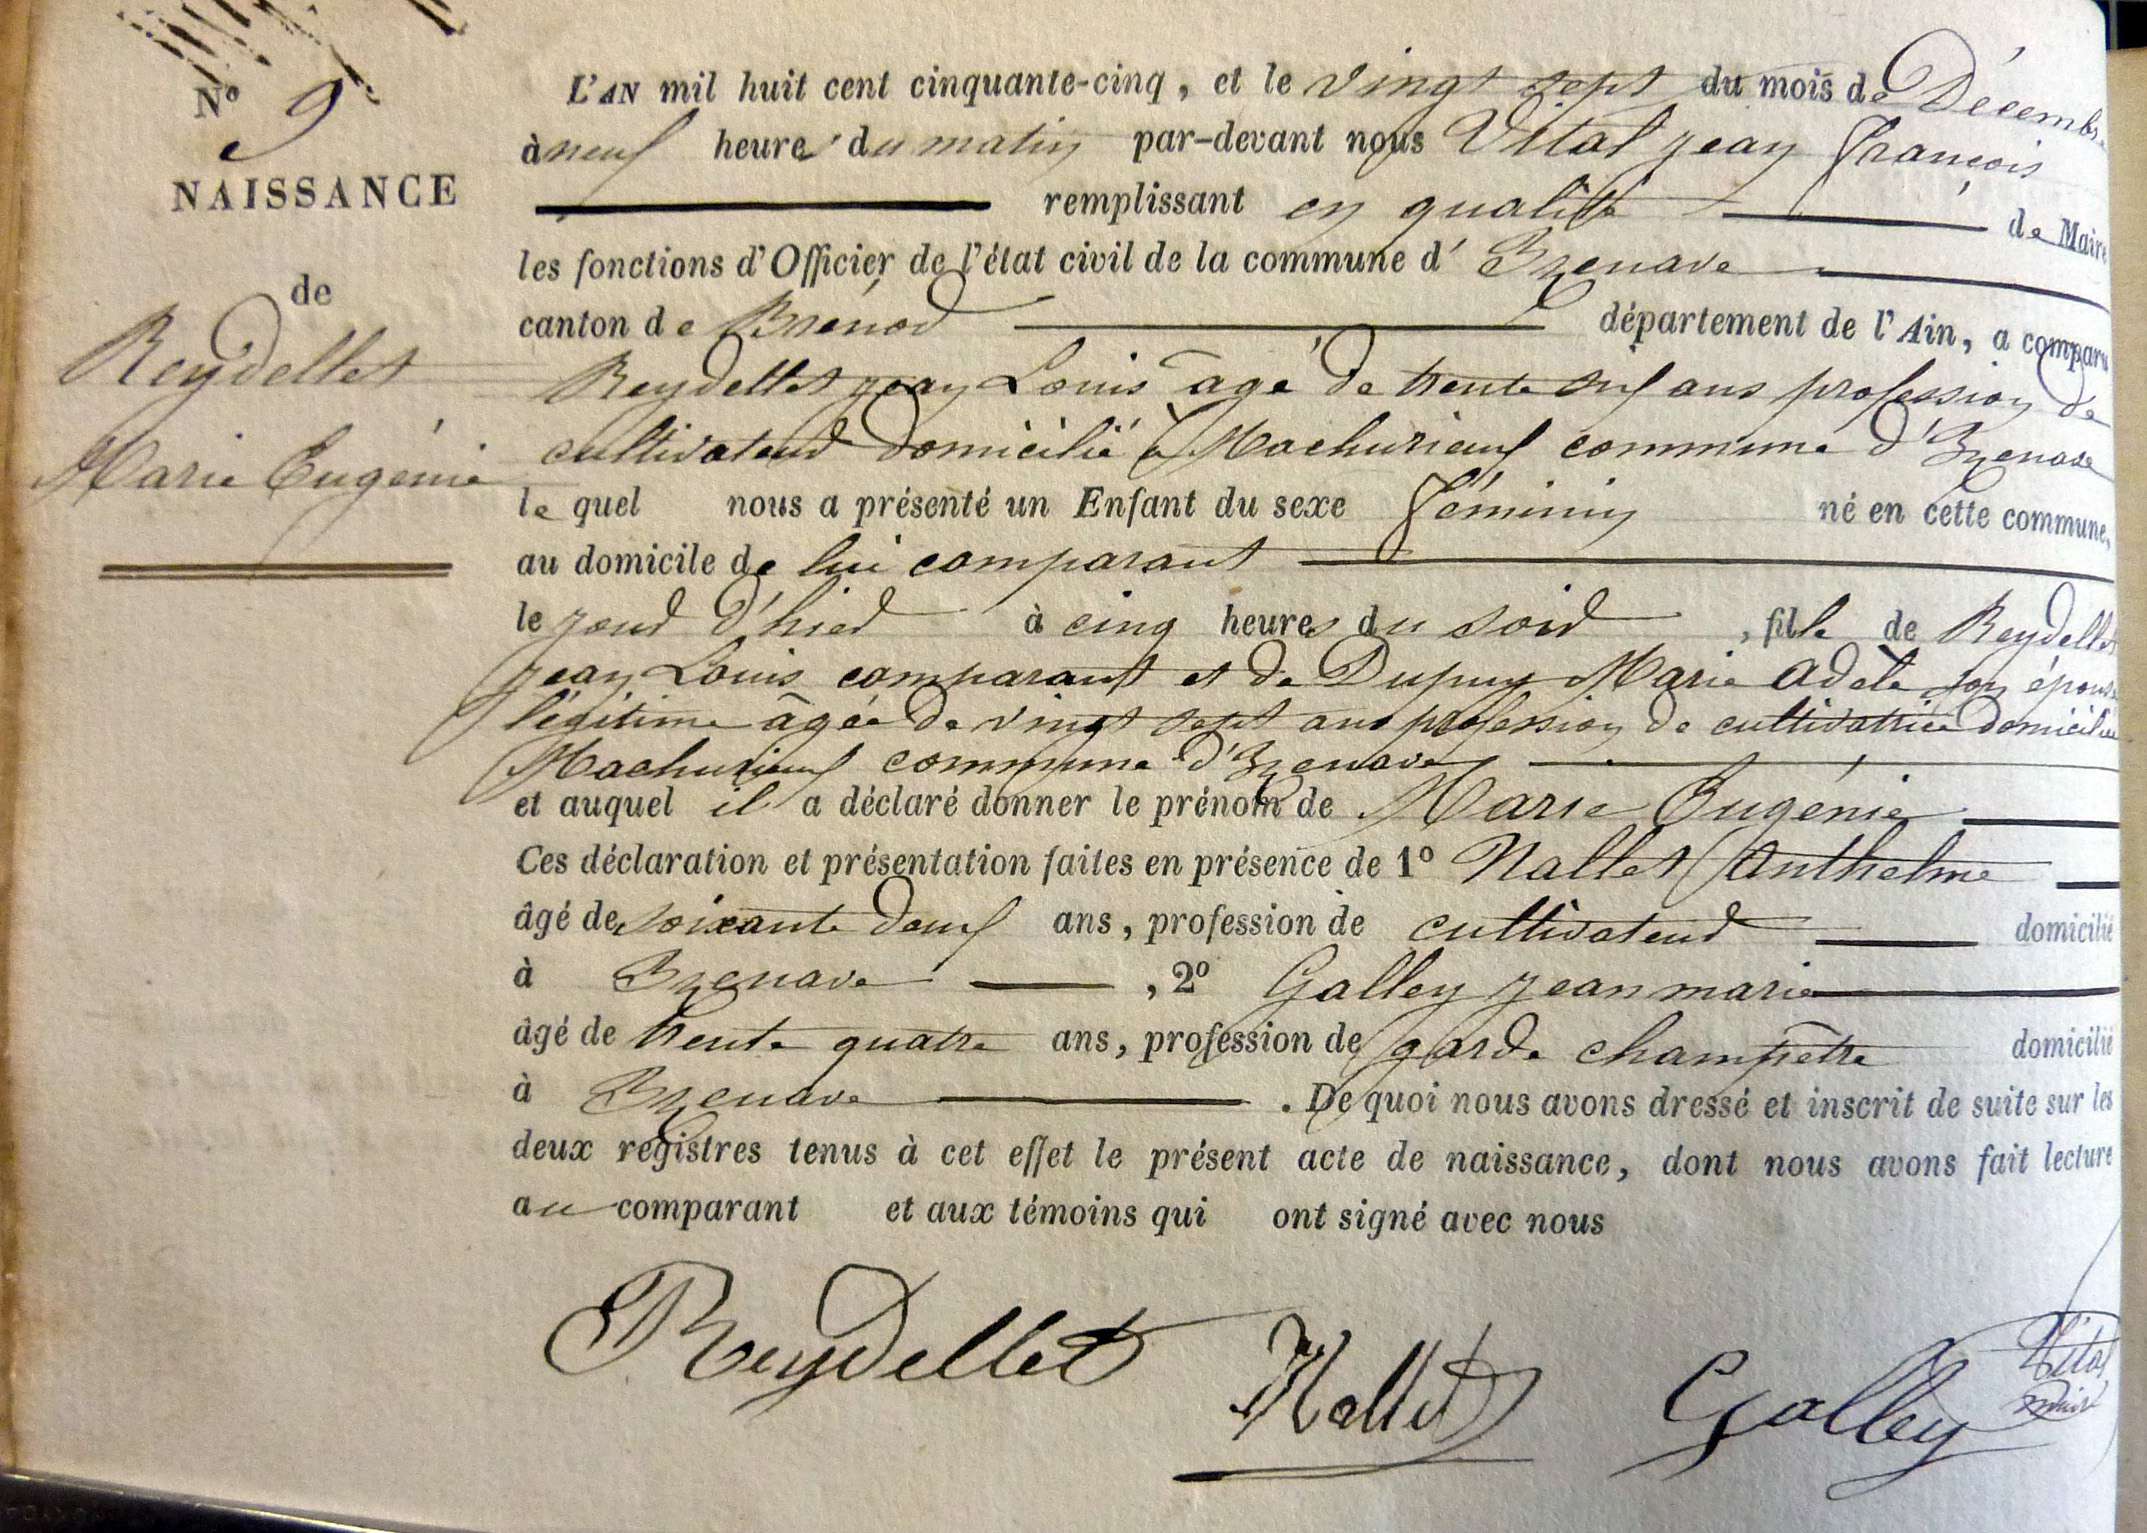 N° 9
NAISSANCE
de
Reydellet
Marie Eugénie
L'AN mil huit cent cinquante-cinq, et le vingt sept du mois de Décembre
à neuf heures du matin par-devant nous Vital jean françois
remplissant en qualité de Maire
les fonctions d'Officier de l'état civil de la commune d' Izenave
canton de Brénod département de l'Ain, a comparu
Reydellet jean Louis âgé de trente ans profession de
cultivateur domicilié à Machurieux commune d'Izenave
le quel nous a présenté un Enfant du sexe féminin né en cette commune,
au domicile de lui comparant
le jour d'hier à cinq heures du soir, fille de Reydellet
jean Louis comparant et de Dupuy Marie adele son épouse
légitime âgée de vingt sept ans profession de cultivatrice domiciliée
Machurieux commune d'Izenave
et auquel il a déclaré donner le prénom de Marie Eugénie
Ces déclaration et présentation faites en présence de 1° Nallet Anthelme
âgé de soixante deux ans, profession de cultivateur domicilié
à Izenave, 2° Galley jean marie
âgé de trente quatre ans, profession de garde champêtre domicilié
à Izenave. De quoi nous avons dressé et inscrit de suite sur les
deux registres tenus à cet effet le présent acte de naissance, dont nous avons fait lecture
au comparant et aux témoins qui ont signé avec nous
Reydellet Nallet Galley Vital
maire